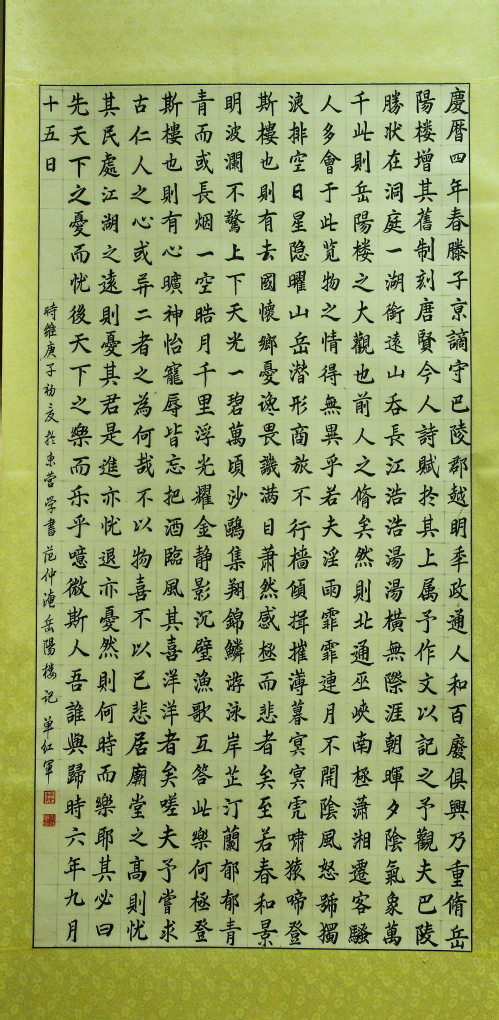 慶暦四年春滕子京謫守巴陵郡越明秊政通人和百廢俱興乃重脩岳
陽楼增其舊制刻唐賢今人詩賦扵其上属予作文以記之予觀夫巴陵
勝状在洞庭一湖銜遠山吞長江浩浩湯湯橫無際涯朝暉夕陰氣象萬
千此則岳陽楼之大觀也前人之脩矣然則北通巫峽南極瀟湘遷客騷
人多會于此览物之情得無異乎若夫淫雨霏霏連月不開陰風怒號獨
浪排空日星隐曜山岳潜形商旅不行檣傾揖摧薄暮冥冥虎啸猿啼登
斯樓也則有去國懷鄉憂谗畏譏满目蕭然感極而悲者矣至若春和景
明波瀾不驚上下天光一碧萬頃沙鷗集翔錦鱗游泳岸芷汀蘭郁郁青
青而或長烟一空皓月千里浮光耀金静影沉璧漁歌互答此樂何極登
斯樓也則有心曠神怡寵辱皆忘把酒臨風其喜洋洋者矣嗟夫予嘗求
古仁人之心或异二者之為何哉不以物喜不以己悲居廟堂之高則忧
其民處江湖之遠則憂其君是進亦忧退亦憂然則何時而樂耶其必曰
先天下之憂而忧後天下之樂而乐乎噫微斯人吾誰與歸時六年九月
十五日
時維庚子初夏扵東营学書范仲淹岳陽樓记單红軍